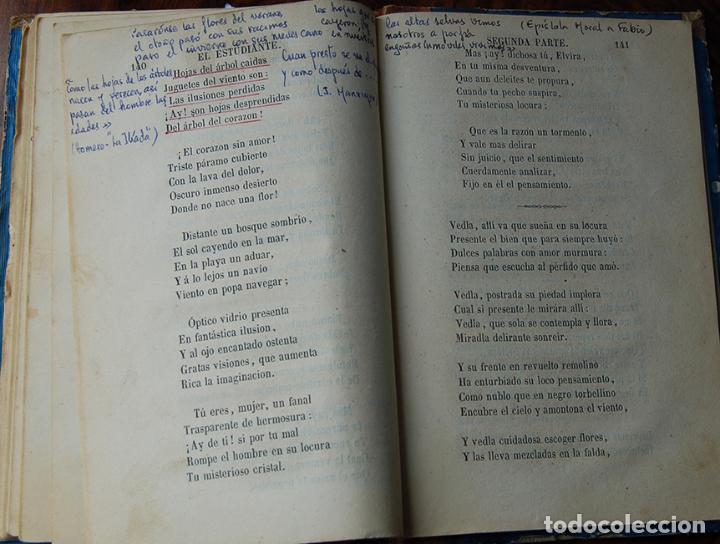 Pasáronse las flores del verano,
el otoño pasó con sus racimos
pasó el invierno con sus nieves cano
las hojas que
cayeron
140
EL ESTUDIANTE.
Como las hojas de los árboles
nacen y perecen, así
pasan del hombre las
edades»
(Homero - La Ilíada")
Cuan presto se va
y como después de...
(J. Manrique)
Hojas del árbol caidas
Juguetes del viento son:
Las ilusiones perdidas
¡Ay! son hojas desprendidas
Del árbol del corazon!
¡El corazon sin amor!
Triste páramo cubierto
Con la lava del dolor,
Oscuro inmenso desierto
Donde no nace una flor!
Distante un bosque sombrio,
El sol cayendo en la mar,
En la playa un aduar,
Y á lo lejos un navío
Viento en popa navegar;
Óptico vidrio presenta
En fantástica ilusion,
Y al ojo encantado ostenta
Gratas visiones, que aumenta
Rica la imaginacion.
Tú eres, mujer, un fanal
Trasparente de hermosura:
¡Ay de tí! si por tu mal
Rompe el hombre en su locura
Tu misterioso cristal.
las altas selvas vimos
(Epístola Moral a Fabio)
nosotros a porfía
SEGUNDA PARTE.
141
Mas ¡ay! dichosa tú, Elvira,
En tu misma desventura,
Que aun deleites te procura,
Cuando tu pecho suspira,
Tu misteriosa locura:
Que es la razón un tormento,
Y vale mas delirar
Sin juicio, que el sentimiento
Cuerdamente analizar,
Fijo en él el pensamiento.
Vedla, allí va que sueña en su locura
Presente el bien que para siempre huyó:
Dulces palabras con amor murmura:
Piensa que escucha al pérfido que amó.
Vedla, postrada su piedad implora
Cual si presente le mirára allí:
Vedla, que sola se contempla y llora,
Miradla delirante sonreir.
Y su frente en revuelto remolino
Ha enturbiado su loco pensamiento,
Como nublo que en negro torbellino
Encubre el cielo y amontona el viento,
Y vedla cuidadosa escoger flores,
Y las lleva mezcladas en la falda,
todocoleccion.net